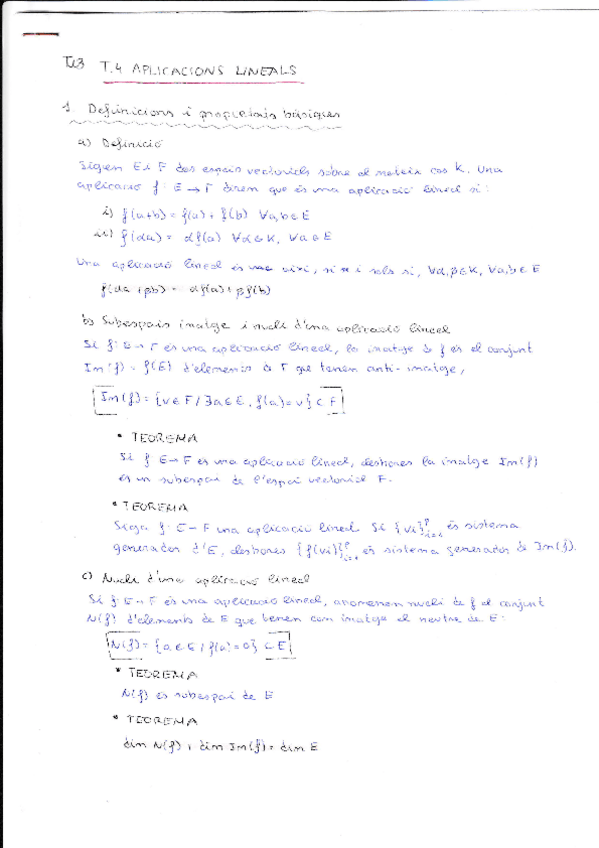 T.3 T.4 APLICACIONS LINEALS
1. Definicions i propietats bàsiques
a) Definició
Siguen E i F dos espais vectorials sobre el mateix cos K. Una
aplicació f: E → F direm que és una aplicació lineal si:
i) f(a+b) = f(a) + f(b) ∀a,b ∈ E
ii) f(αa) = αf(a) ∀α ∈ K, ∀a ∈ E
Una aplicació lineal és així, si i sols si, ∀α,β ∈ K, ∀a,b ∈ E
f(αa + βb) = αf(a) + βf(b)
b) Subespais imatge i nucli d'una aplicació lineal
Si f: E → F és una aplicació lineal, la imatge de f és el conjunt
Im(f) = f(E) d'elements de F que tenen anti-imatge,
Im(f) = {v ∈ F / ∃a ∈ E, f(a) = v} ⊂ F
• TEOREMA
Si f: E → F és una aplicació lineal, desthores la imatge Im(f)
és un subespai de l'espai vectorial F.
• TEOREMA
Siga f: E → F una aplicació lineal. Si {vi}ᵖᵢ₌₁ és sistema
generador d'E, desthores {f(vi)}ᵖᵢ₌₁ és sistema generador de Im(f).
c) Nucli d'una aplicació lineal
Si f: E → F és una aplicació lineal, anomenem nucli de f al conjunt
N(f) d'elements de E que tenen com imatge el neutre de E:
N(f) = {a ∈ E / f(a) = 0} ⊂ E
• TEOREMA
N(f) és subespai de E
• TEOREMA
dim N(f) + dim Im(f) = dim E